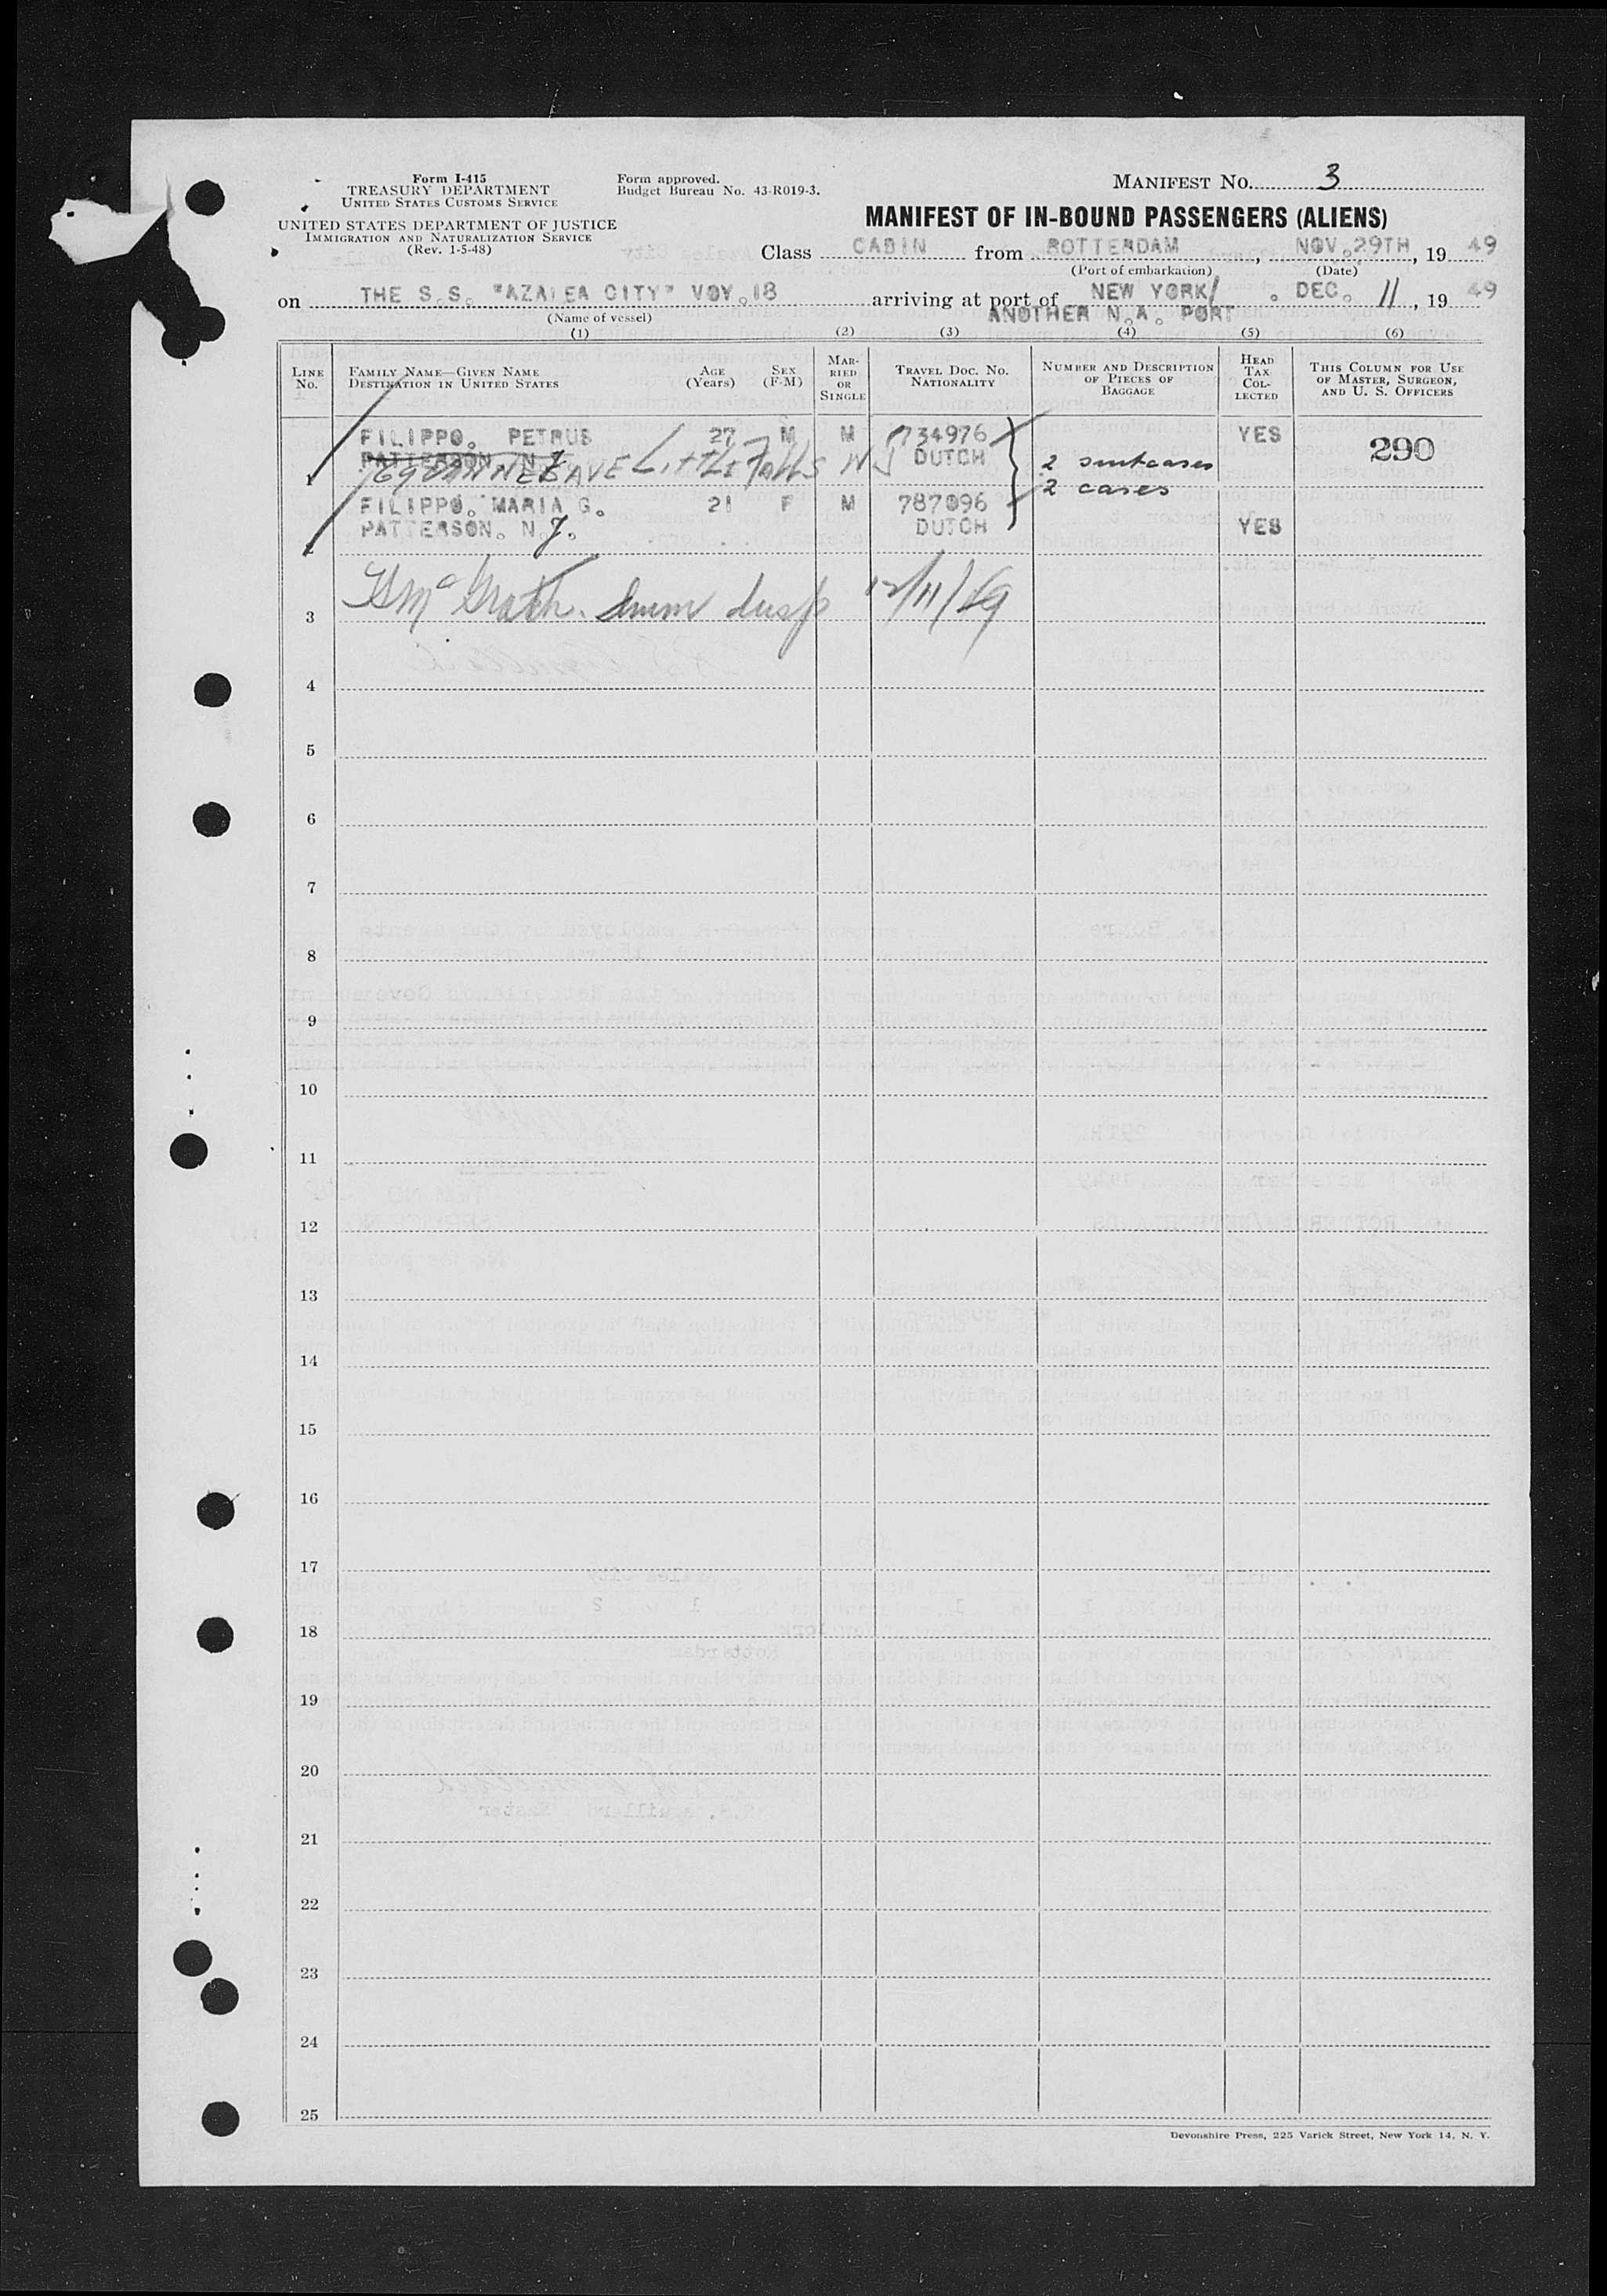 Form I-415
TREASURY DEPARTMENT
UNITED STATES CUSTOMS SERVICE
UNITED STATES DEPARTMENT OF JUSTICE
IMMIGRATION AND NATURALIZATION SERVICE
(Rev. 1-5-48)
Form approved.
Budget Bureau No. 43-R019-3.
MANIFEST NO. 3
MANIFEST OF IN-BOUND PASSENGERS (ALIENS)
Class CABIN from ROTTERDAM, NOV.29TH, 19 49
(Port of embarkation) (Date)
on THE S.S. "AZALEA CITY" VOY.18 arriving at port of NEW YORK/ . DEC. 11, 19 49
(Name of vessel) ANOTHER N.A. PORT
(1) (2) (3) (4) (5) (6)
LINE No.
FAMILY NAME—GIVEN NAME
DESTINATION IN UNITED STATES
AGE (Years)
SEX (F-M)
MARRIED OR SINGLE
TRAVEL DOC. NO.
NATIONALITY
NUMBER AND DESCRIPTION OF PIECES OF BAGGAGE
HEAD TAX COLLECTED
THIS COLUMN FOR USE OF MASTER, SURGEON, AND U. S. OFFICERS
FILIPPO. PETRUS 27 M M 734976 YES 290
PATTERSON. N.J. DUTCH
1 AVE LITTLE FALLS NJ 2 suitcases
2 cases
FILIPPO. MARIA G. 21 F M 787096
PATTERSON. N.J. DUTCH YES
2
McGrath. Imm Insp 12/11/49
3
4
5
6
7
8
9
10
11
12
13
14
15
16
17
18
19
20
21
22
23
24
25
Devonshire Press, 225 Varick Street, New York 14, N. Y.